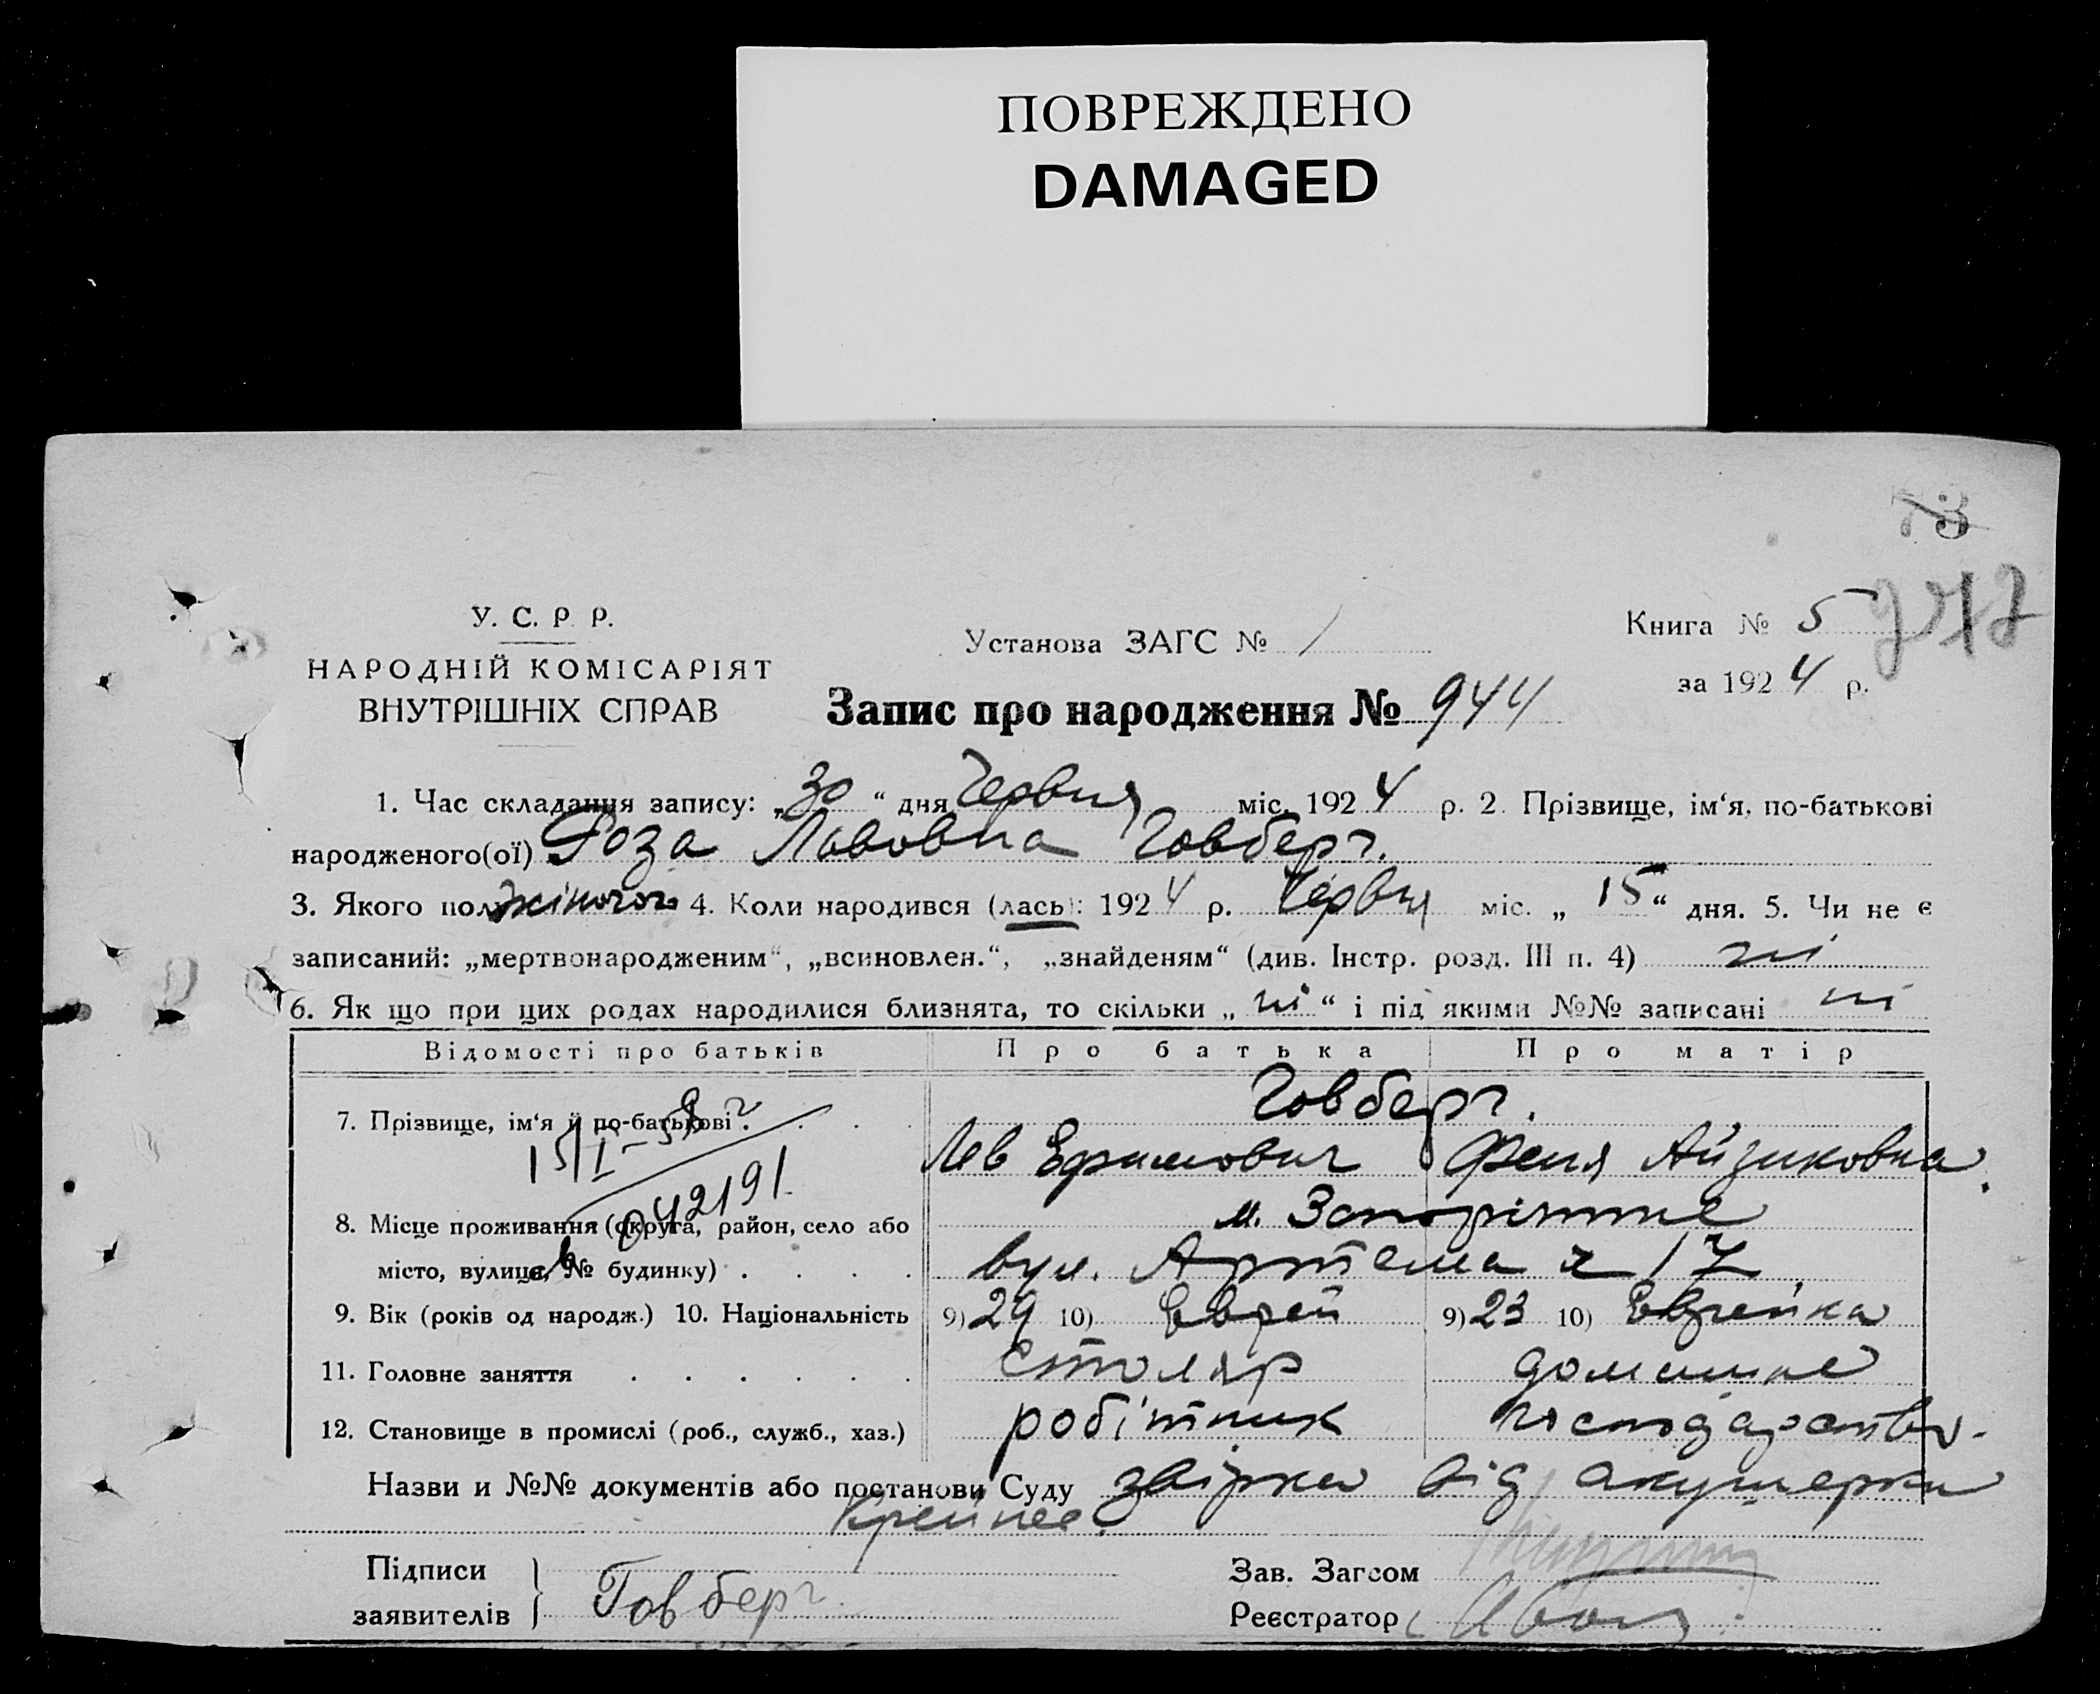 ПОВРЕЖДЕНО
DAMAGED
У. С. Р. Р.
НАРОДНІЙ КОМІСАРІЯТ
ВНУТРІШНІХ СПРАВ
Установа ЗАГС № 1
Книга № 5
за 1924 р.
Запис про народження № 944
1. Час складання запису: „30“ дня Червня міс. 1924 р. 2. Прізвище, ім‘я, по-батькові
народженого(ої) Роза Львовна Говберг.
3. Якого полу жіночого 4. Коли народився (лась): 1924 р. Червня міс. „15“ дня. 5. Чи не є
записаний: „мертвонародженим“, „всиновлен.“, „знайденям“ (див. Інстр. розд. III п. 4) ні
6. Як що при цих родах народилися близнята, то скільки „ні“ і під якими №№ записані ні
Відомості про батьків Про батька Про матір
Говберг.
7. Прізвище, ім‘я й по-батькові
Лев Ефимович Феня Айзиковна
15/I-58 г
042191
м. Запоріжжє
8. Місце проживання (округа, район, село або
місто, вулиця, № будинку) вул. Артема № 17
9. Вік (років од народж.) 10. Національність 9) 29 10) Еврей 9) 23 10) Еврейка
11. Головне заняття Столяр домашнє
12. Становище в промислі (роб., служб., хаз.) робітник господарство.
Назви и №№ документів або постанови Суду звірка від акушерки
Підписи
заявителів Говберг
Зав. Загсом
Реєстратор